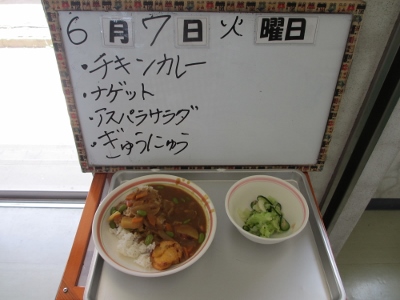 6月7日火曜日
・チキンカレー
・ナゲット
・アスパラサラダ
・ぎゅうにゅう